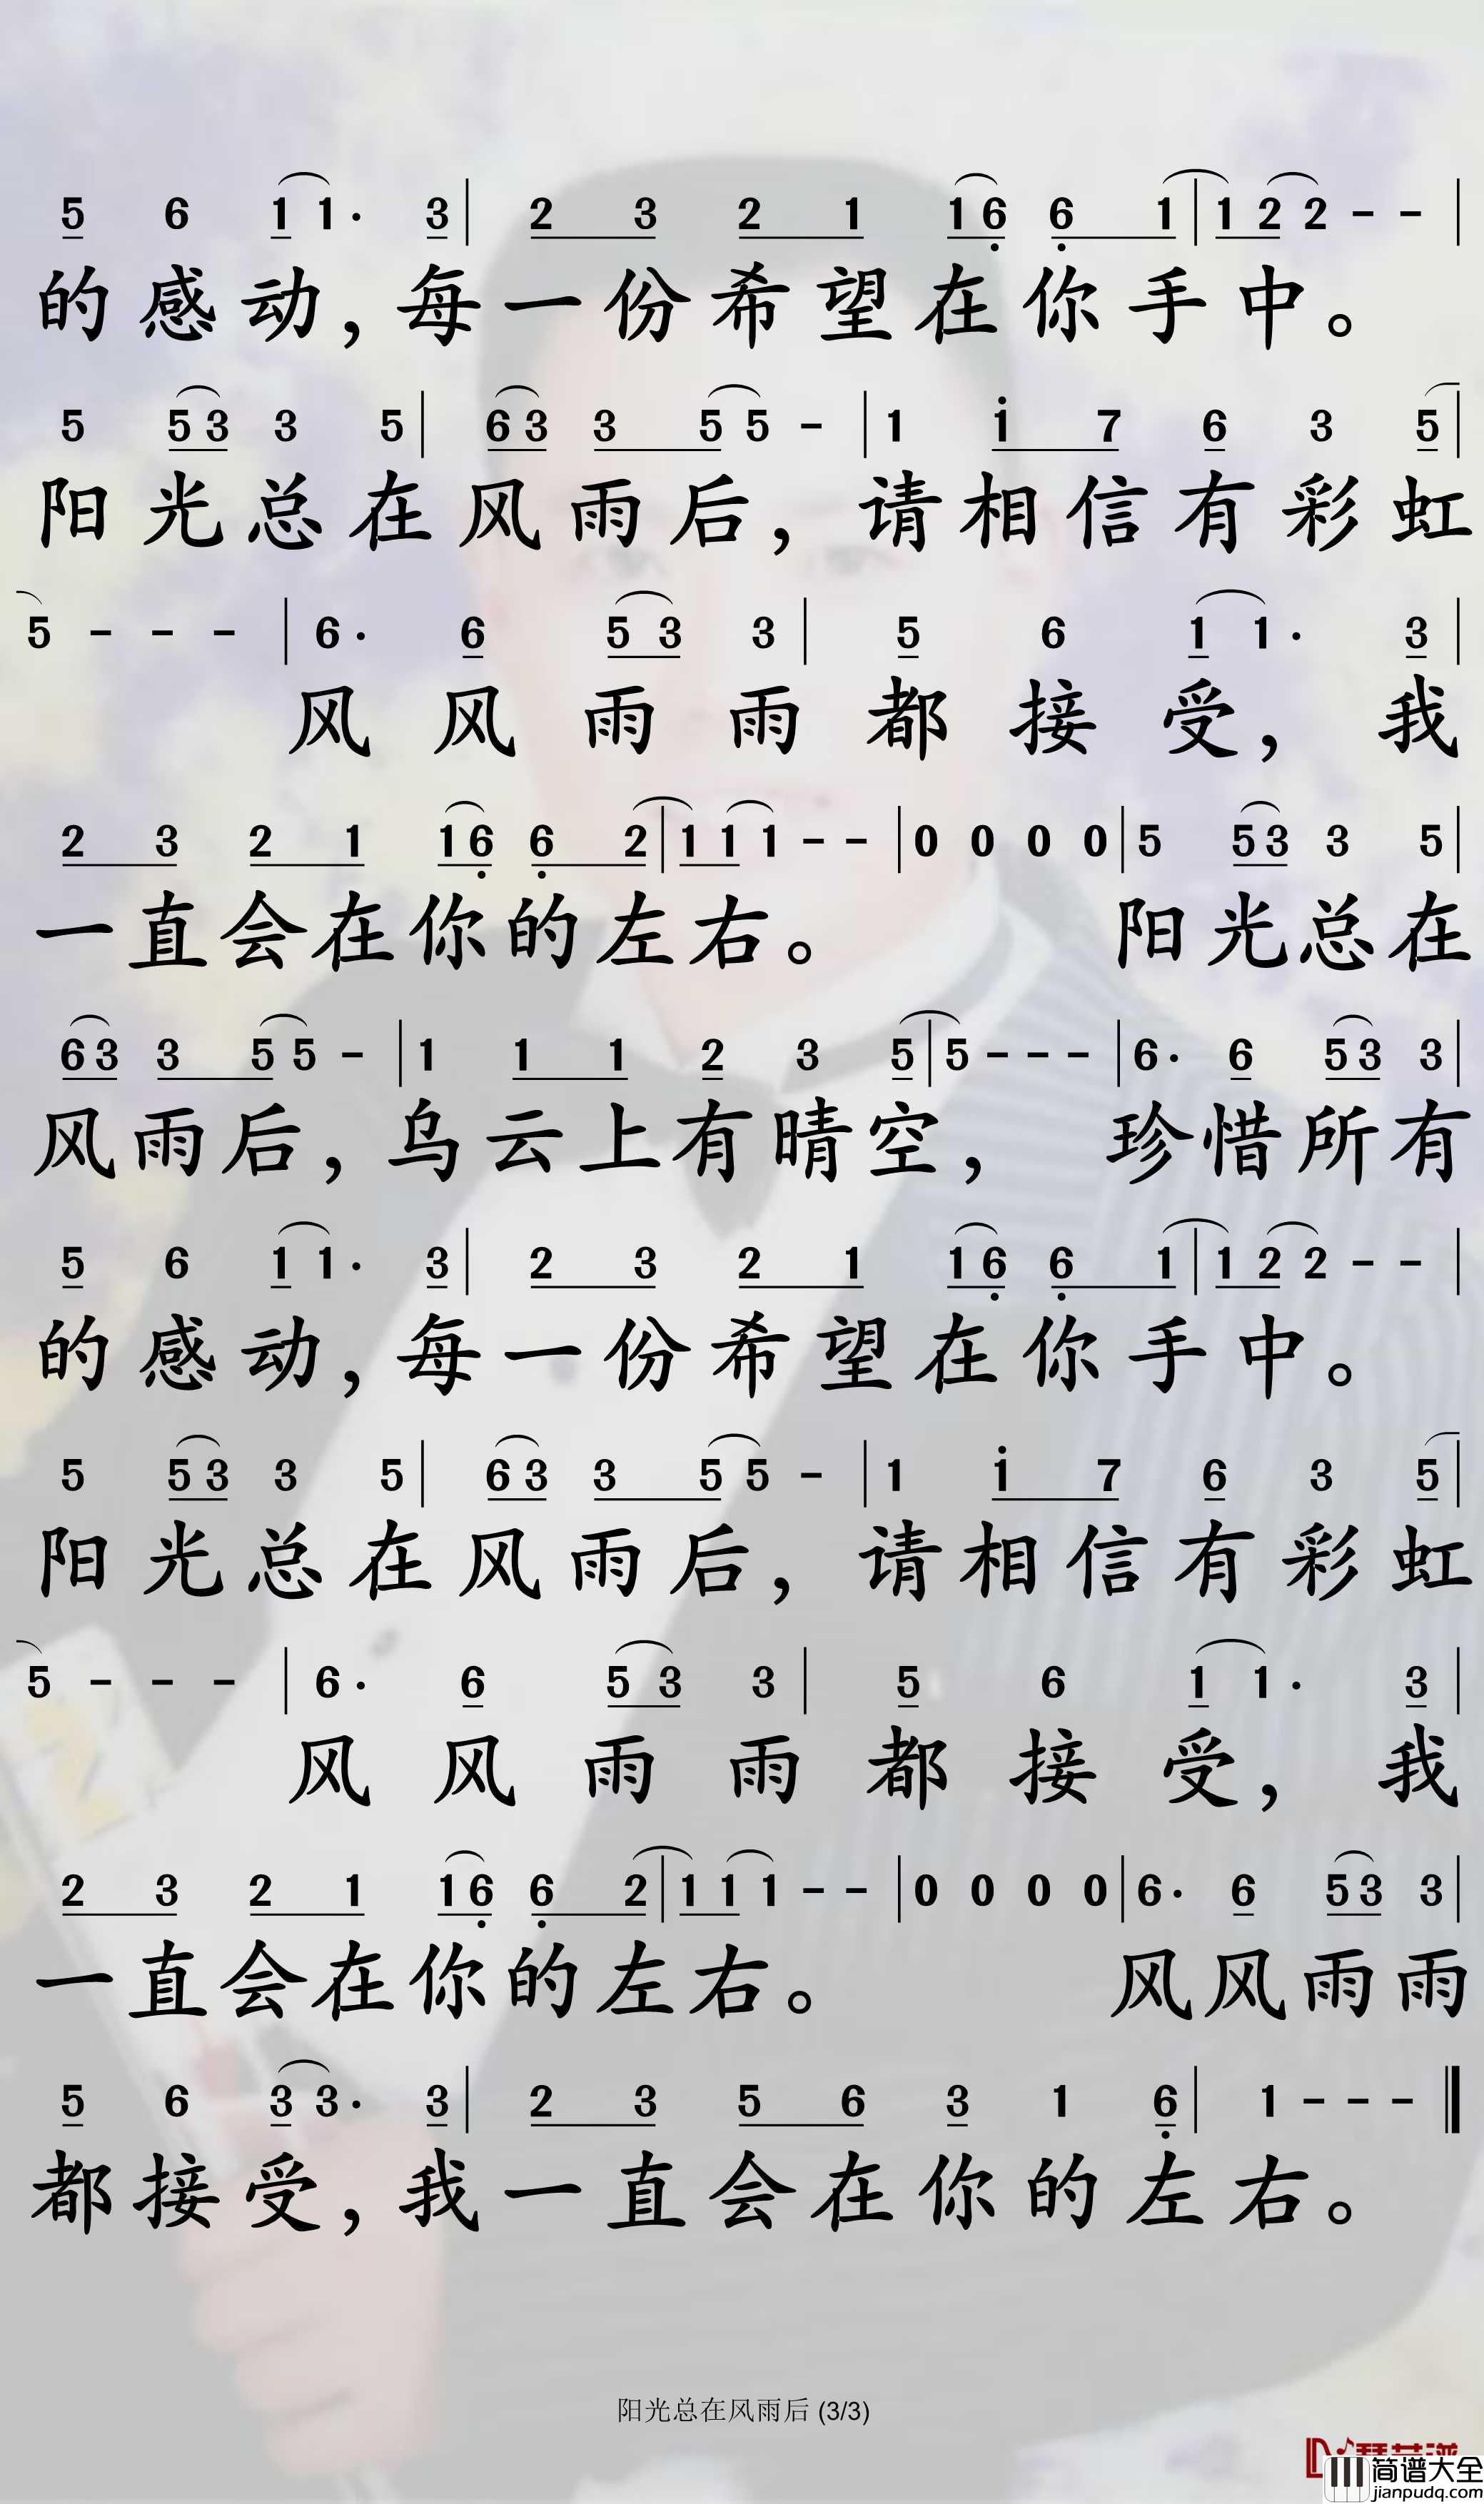 5 6 1 1· 3 | 2 3 2 1 1 6 6 1 | 1 2 2 - - |
的感动，每一份希望在你手中。
5 5 3 3 5 | 6 3 3 5 5 - | 1 1 7 6 3 5 |
阳光总在风雨后，请相信有彩虹
5 - - - | 6· 6 5 3 3 | 5 6 1 1· 3 |
风风雨雨都接受，我
2 3 2 1 1 6 6 2 | 1 1 1 - - | 0 0 0 0 | 5 5 3 3 5 |
一直会在你的左右。 阳光总在
6 3 3 5 5 - | 1 1 1 2 3 5 | 5 - - - | 6· 6 5 3 3 |
风雨后，乌云上有晴空， 珍惜所有
5 6 1 1· 3 | 2 3 2 1 1 6 6 1 | 1 2 2 - - |
的感动，每一份希望在你手中。
5 5 3 3 5 | 6 3 3 5 5 - | 1 1 7 6 3 5 |
阳光总在风雨后，请相信有彩虹
5 - - - | 6· 6 5 3 3 | 5 6 1 1· 3 |
风风雨雨都接受，我
2 3 2 1 1 6 6 2 | 1 1 1 - - | 0 0 0 0 | 6· 6 5 3 3 |
一直会在你的左右。 风风雨雨
5 6 3 3· 3 | 2 3 5 6 3 1 6 | 1 - - - ‖
都接受，我一直会在你的左右。
阳光总在风雨后 (3/3)
简谱大全
jianpudq.com